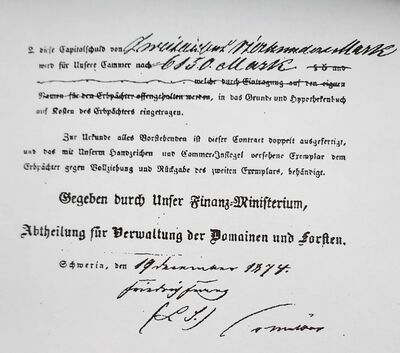 2. diese Capitalschuld von Zweitausend Vierhundert Mark
wird für Unsere Cammer nach 6150 Mark
welcher durch Eintragung auf den eignen
Namen für den Erbpächter offengehalten werden, in das Grund- und Hypothekenbuch
auf Kosten des Erbpächters eingetragen.
Zur Urkunde alles Vorstehenden ist dieser Contract doppelt ausgefertigt,
und das mit Unserm Handzeichen und Cammer-Insiegel versehene Exemplar dem
Erbpächter gegen Vollziehung und Rückgabe des zweiten Exemplars, behändigt.
Gegeben durch Unser Finanz-Ministerium,
Abtheilung für Verwaltung der Domainen und Forsten.
Schwerin, den 19. December 1874.
Friedrich Franz
(L. S.)